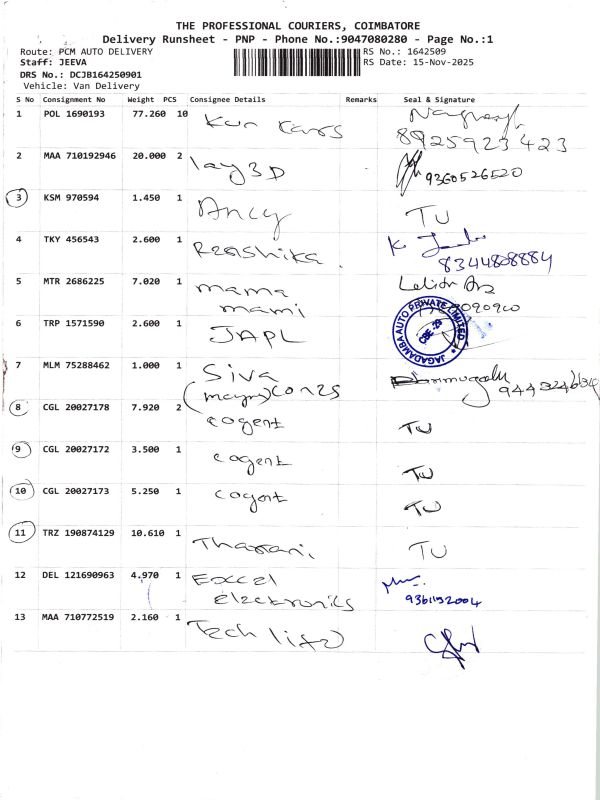 THE PROFESSIONAL COURIERS, COIMBATORE
Delivery Runsheet - PNP - Phone No.:9047080280 - Page No.:1
Route: PCM AUTO DELIVERY RS No.: 1642509
Staff: JEEVA RS Date: 15-Nov-2025
DRS No.: DCJB164250901
Vehicle: Van Delivery
S No Consignment No Weight PCS Consignee Details Remarks Seal & Signature
1 POL 1690193 77.260 10 Kun Cars
8925923423
2 MAA 710192946 20.000 2 lay3D 9360526520
3 KSM 970594 1.450 1 Ancy TU
4 TKY 456543 2.600 1 K.
8344808884
5 MTR 2686225 7.020 1 mama
mami
6 TRP 1571590 2.600 1 JAPL JAGADAMBA AUTO PRIVATE LIMITED CBE-29
7 MLM 75288462 1.000 1 Siva
8 CGL 20027178 7.920 2 cogent TU
9 CGL 20027172 3.500 1 cogent TU
10 CGL 20027173 5.250 1 cogent TU
11 TRZ 190874129 10.610 1 TU
12 DEL 121690963 4.970 1 Excel
electronics 9361152004
13 MAA 710772519 2.160 1 Tech